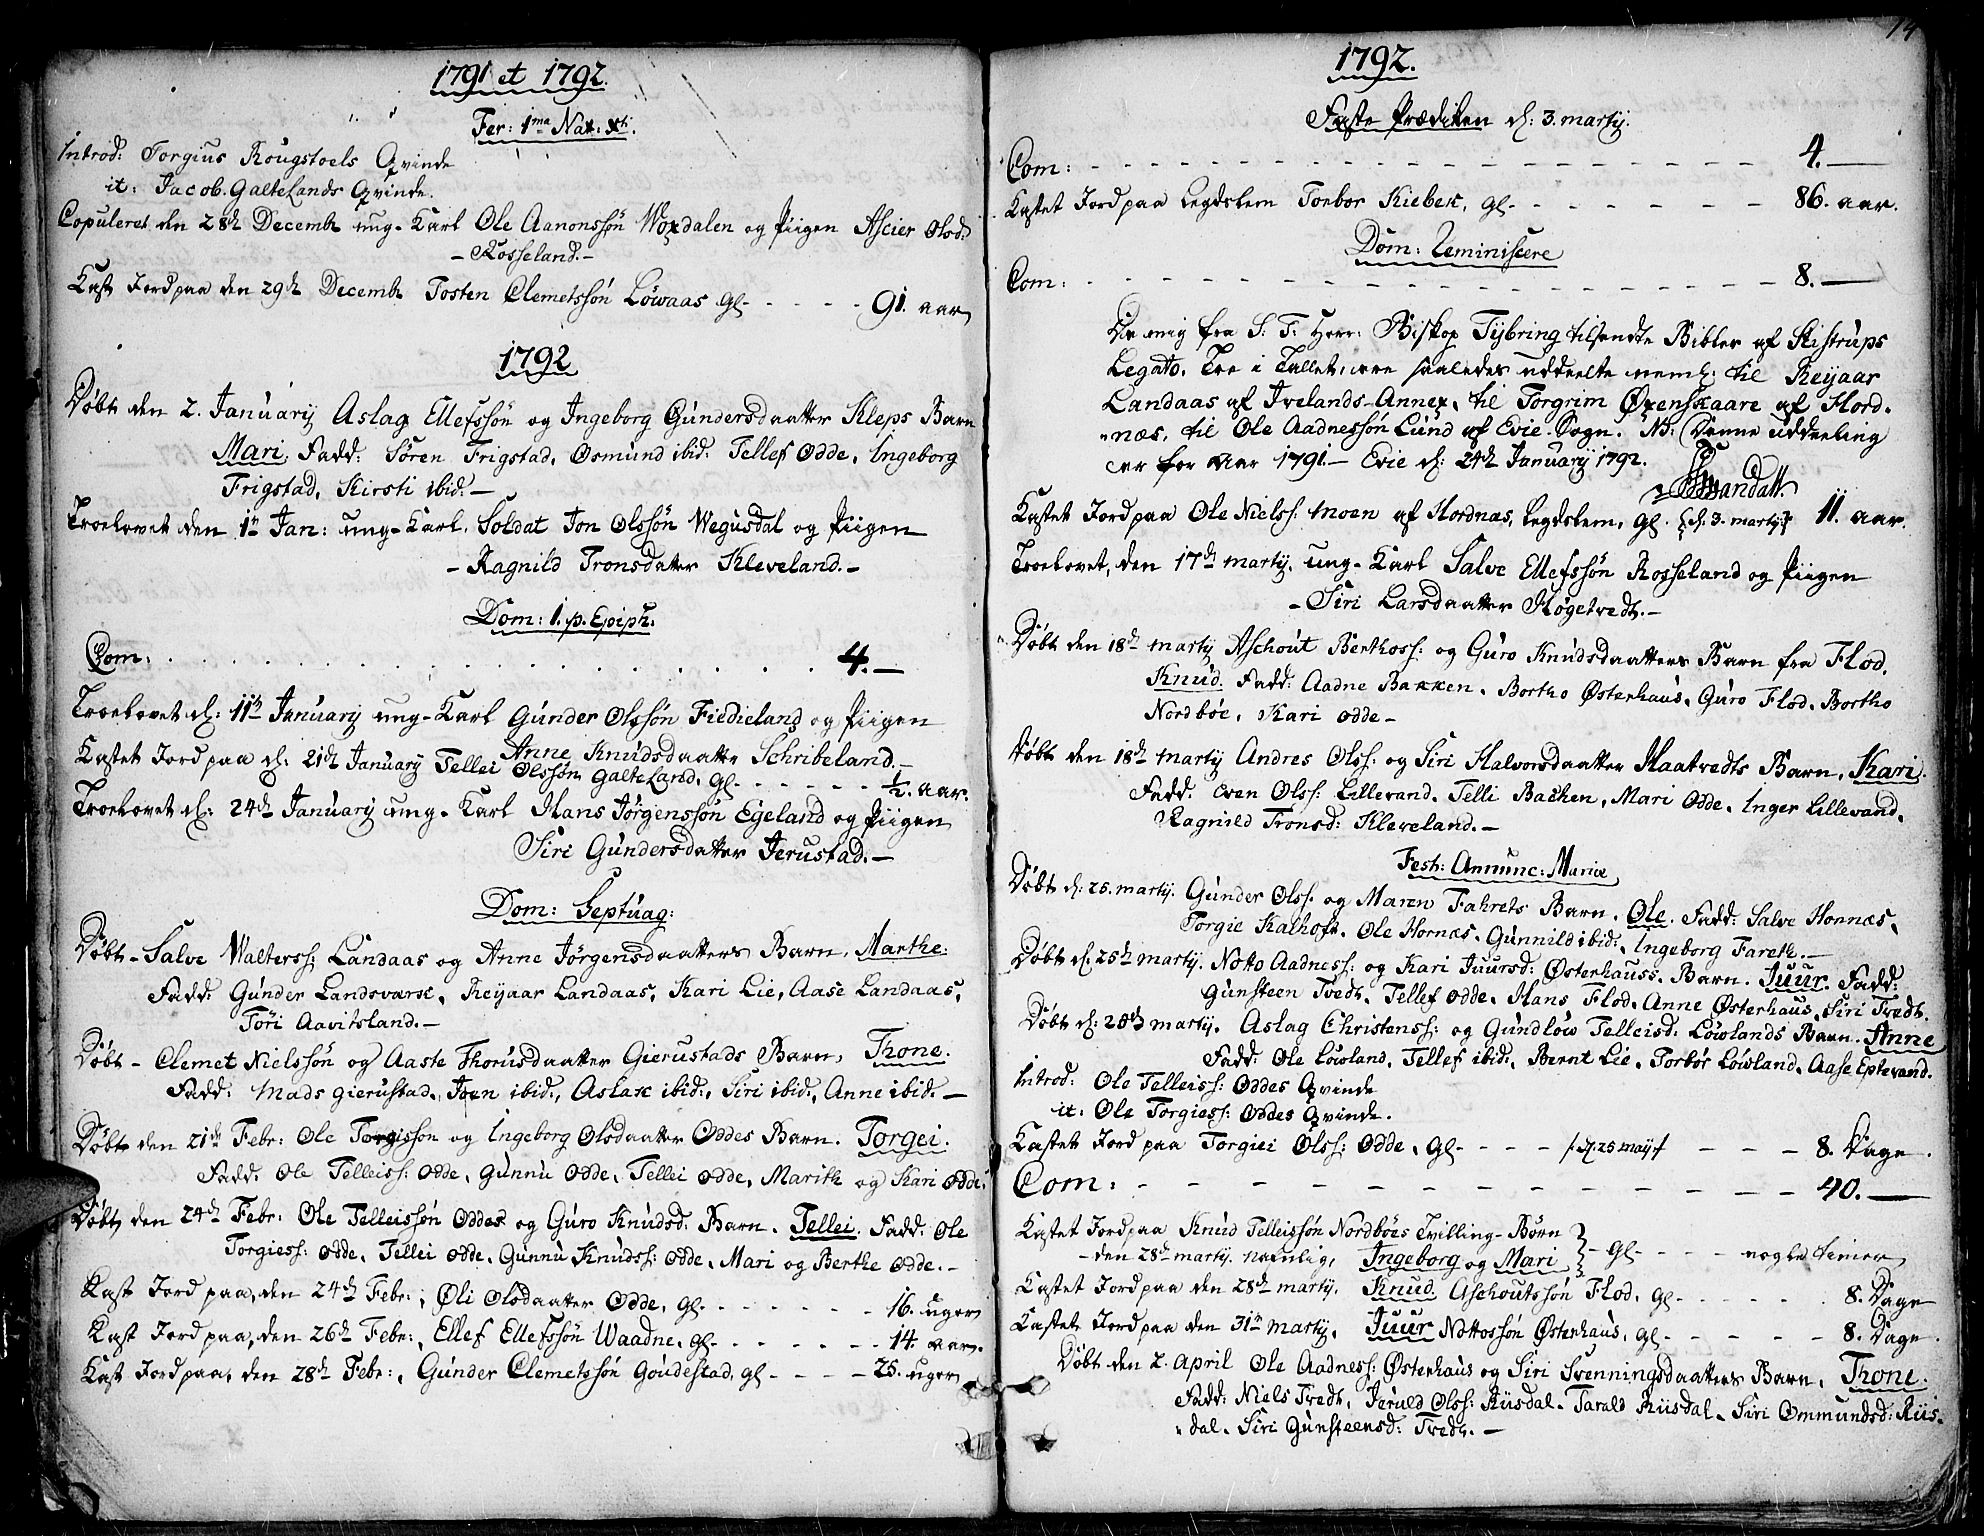 1791 et 1792.
Fer: 1ma Nat: Xti.
Introd: Torgius Rougstoels Qvinde
it: Jacob. Galtelands Qvinde.
Copuleret den 28de Decembr ung-Karl Ole Aanonssön Woxdalen og Piigen Ascier Olsd:
- Rosseland.-
Kast Jord paa den 29de Decembr Tosten Clemetssön Löwaas gl- - - - - 91. aar
1792
Döbt den 2. Januarij Aslag Ellefssön og Ingeborg Gundersdaatter Kleps Barn
Mari. Fadd: Sören Frigstad, Osmund ibid: Tellef Odde, Ingeborg
Frigstad, Kirsti ibid:-
Troelovet den 1te Jan: ung-Karl, Soldat Jon Olssön Wegusdal og Piigen
- Ragnild Tronsdatter Kleveland.-
Dom: 1. p. Epiph:
Com: . . . . . . . . . . . . . . . 4.-
Troelovet d: 11te Januarij ung-Karl Gunder Olssön Fiedieland og Piigen
Anne Knudsdaatter Schribeland.-
Kastet Jord paa d: 21de Januarij Tellei Olssön Galteland, gl- - - - - - 1/2. aar.
Troelovet d: 24de Januarij ung-Karl Hans Jörgenssön Egeland og Piigen
Siri Gundersdatter Jerustad.-
Dom: Septuag:
Döbt - Salve Walterss: Landaas og Anne Jörgensdaatters Barn, Marthe:
Fadd: Gunder Landsværk, Reijaar Landaas, Kari Lie, Aase Landaas,
Töri Aavitsland.-
Döbt - Clemet Nielssön og Aaste Thorusdaatter Gierustads Barn, Trone.
Fadd: Mads gierustad, Joen ibid:, Aslak ibid:, Siri ibid:, Anne ibid.-
Döbt den 21de Febr: Ole Torgisson og Ingeborg Olsdaatter Oddes Barn. Torgei.
Fadd: Ole Telleiss: Odde, Gunnu Odde, Tellei Odde, Marith og Kari Odde.
Döbt den 24de Febr: Ole Telleissön Oddes og Guro Knudsd: Barn. Tellei. Fadd: Ole
Torgiess: Odde, Tellei Odde, Gunnu Knudss: Odde, Mari og Berthe Odde.-
Kast Jord paa, den 24de Febr:, Öli Olsdaatter Odde, gl- - - - - - - 16. uger
Kast Jord paa, den 26de Febr:, Ellef Ellefssön Waadne, gl- - - - - - - 14. aar.
Kast Jord paa, den 28de Febr:, Gunder Clemetssön Goudestad, gl - - - - 25. uger
14
1792.
Faste Prædiken d: 3. martij.
Com: - - - - - - - - - - - - - - - 4.-
Kastet Jord paa Legdslem Torbor Kiebek, gl- - - - - - - 86. aar.
Dom: Reminiscere
Com: - - - - - - - - - - - - - - - 8.-
De mig fra S. T. Herr: Biskop Tybring tilsendte Bibler af Kistrups
Legato, Tre i Tallet, ere saaledes uddeelte neml: til Reijaar
Landaas af Ivelands-Annex, til Torgrim Öxenskaare af Hord-
-næs, til Ole Aadnessön Lund af Evie-Sogn. NB: (Denne uddeeling
er for Aar 1791.- Evie d: 24de Januarij 1792.
Kastet Jord paa Ole Nielss: moen af Hordnæs, Legdslem, gl. {d. 3. martij} 11. aar.
Troelovet, den 17de martij, ung-Karl Salve Ellefssön Rosseland og Piigen
- Siri Larsdaatter Högetvedt.-
Döbt den 18de martij Aschout Berthoss: og Guro Knudsdaatters Barn fra Flod,
Knud. Fadd: Aadne Bakken, Bortho Österhaus, Guro Flod, Bortho
Nordböe, Kari Odde-
Döbt den 18de martij Andres Olss: og Siri Halvorsdaatter Haatvedts Barn, Kari.
Fadd: Even Olss: Lillevand, Telli Bachen, Mari Odde, Inger Lillevand,
Ragnild Tronsd: Kleveland.-
Fest: Annunc: Mariæ
Döbt d: 25. martij. Gunder Olss: og Maren Fahrets Barn. Ole. Fadd: Salve Honnæs,
Torgie Kalhoft, Ole Hornæs, Gunnild ibid:, Ingeborg Fareth.-
Döbt d: 25de martij. Notto Aadness: og Kari Juursd: Österhauss. Barn. Juur. Fadd:
Gunsteen Tvedt, Tellef Odde, Hans Flod, Anne Österhaus, Siri Tvedt.
Döbt d: 25de martij. Aslag Christenss: og Gundlöw Telleisd: Löwlands Barn. Anne
Fadd: Ole Löwland, Tellef ibid:, Bernt Lie, Torbör Löwland, Aase Eptevand.
Introd: Ole Telleiss: Oddes Qvinde
it: Ole Torgiess: Oddes Qvinde.
Kastet Jord paa Torgiei Olss: Odde, gl- - - - /:d. 25 maij:/ - - - 8. Dage.
Com: - - - - - - - - - - - - 40.-
Kastet Jord paa Knud Telleissön Nordböes Tvilling-Börn
- den 28de martij. nemlig, Ingeborg og Mari } - gl- - - - - - nogle timer
Kastet Jord paa den 28de martij, Knud Aschoutssön Flod, gl- - - - - - 8. Dage
Kastet Jord paa den 31te martij, Juur Nottossön Österhaus, gl- - - - - - 8. Dage.
Döbt den 2. April Ole Aadness: Österhaus og Siri Svenningsdaatters Barn, Trone.
Fadd: Niels Tvedt, Jeruld Olss: Riisdal, Tarald Riisdal, Siri Ommundsd: Riis-
-dal, Siri Gunsteensd: Tvedt.-